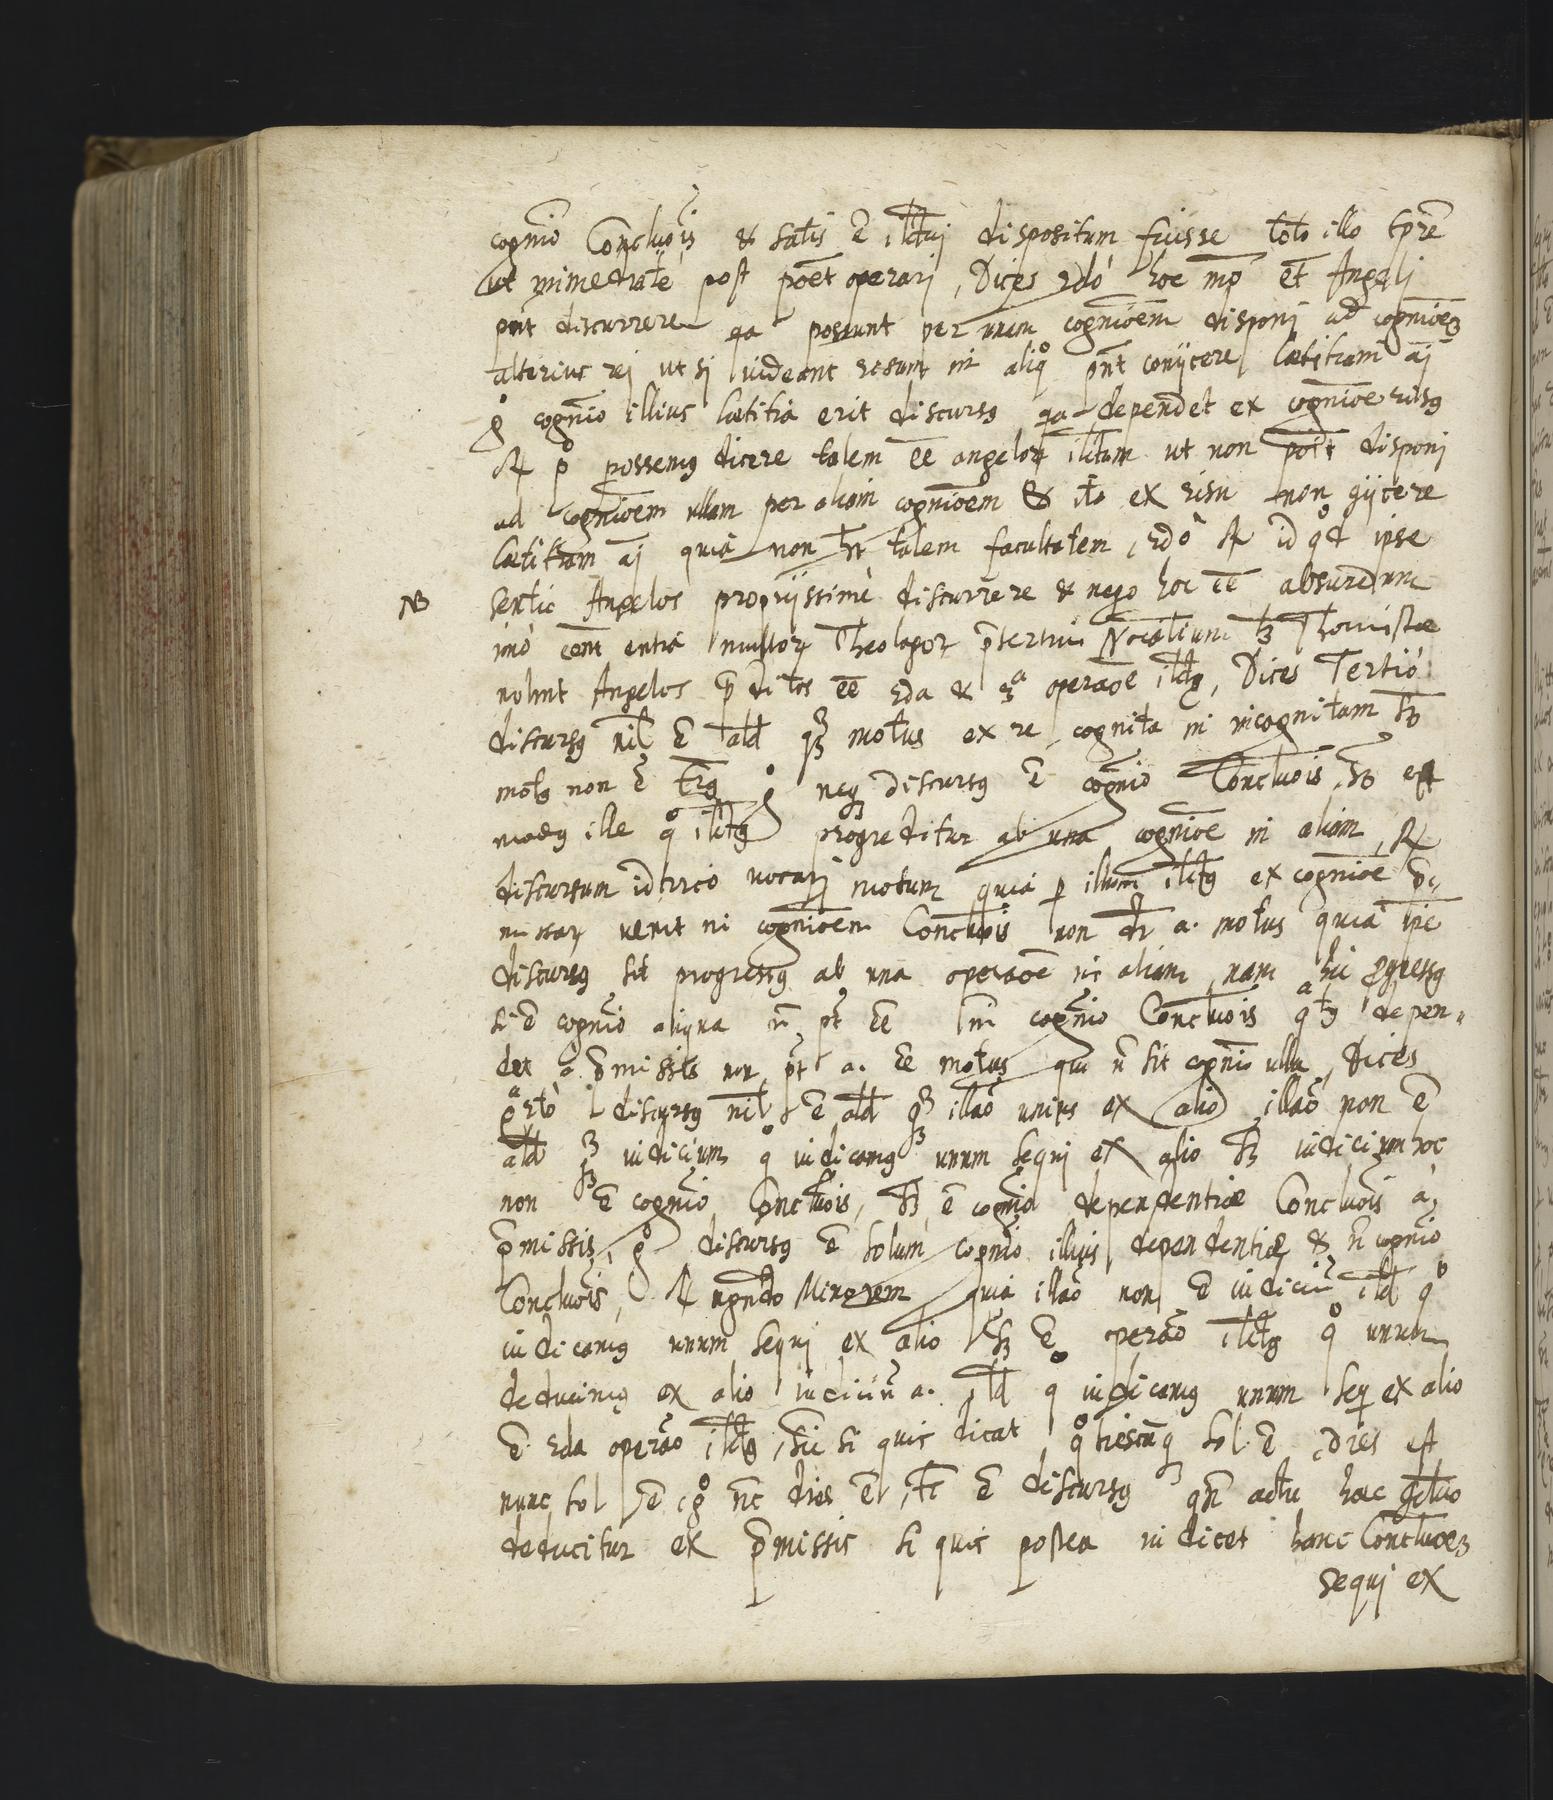 cognio Concluois & satis ē illtuj dispositum fuisse toto illo tpre
ut immediate post poēt operarj, Dices 2do hoc mō et Angeli
pnt discurrere qa possunt per unam cognioem disponj ad cognioēm
alterius rej ut si uideant risum in aliqo pnt coniicere laetitiam aj
go cognio illius laetitia erit discursq qa dependet ex cognioe risq
R po possemq dicere talem ēe angelorum illtum ut non poīt disponj
ad cognioem ullam per aliam cognioem & ita ex risu non giicere
laetitiam aj quia non hnt talem facultatem, 2do R id qod ipse
NB sentio Angelos propriissime discurrere & nego hoc ēe absurdum
imo cont entia multorum Theologor prtertim Noialium sz Thomistae
nolint Angelos prditos ēe 2da & 3a operaoe illtq, Dices Tertio
discursq nil ē aliud qz motus ex re cognita in incognitam sz
motq non ē go neq discursq ē cognio Concluois, sz est
modq ille qo illtq progreditur ab una cognioe in aliam, R
discursum idcirco uocarj motum quia p illum illtq ex cognioe pr
missar uenit in cognioem Concluois non dr a. motus quia ipe
discursq sit progressq ab una operaoe in aliam, nam hic progressq
si ē cognio aliqua n pt ēe nī cognio Concluois qa depen-
det a prmissis non pt a. ēe motus qui n sit cognio ulla, Dices
qarto discursq nil ē ald qz illao unius ex alio illao non ē
ald qz iudicium qo iudicamq unum sequj ex alio sz iudicium hoc
non ē cognio Concluois, sz ē cognio dependentiae Concluois a
prmissis, go discursq ē solum cognio illius dependentiae & n cognio
Concluois, R ngndo Minorem quia illao non ē iudiciū ild qo
iudicamq unum sequj ex alio sz ē operao illtq qo unum
deducimq ex alio iudiciū a. ild qo iudicamq unum seq ex alio
ē 2da operao illtq, sic si quis dicat qotiescuq sol ē, dies est
nunc sol ē go nc dies ē, hic ē discursq qn actu haec gcluo
deducitur ex prmissis si quis postea iudicet hanc Concluoez
sequj ex